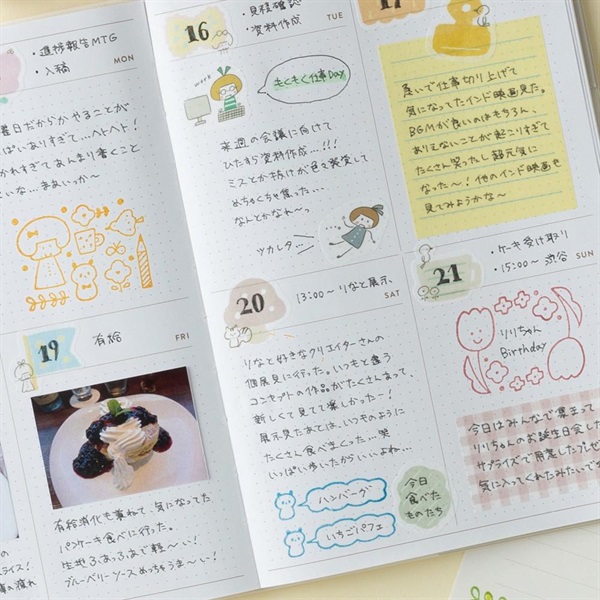 ・進捗報告MTG
・入稿
MON
曜日だからかやることが
ぱいありすぎて…ヘトヘト!
かれすぎてあんまり書くこと
といな…まあいっか〜
16
・見積確認
・資料作成
TUE
work
もくもく仕事Day
来週の会議に向けて
ひたすら資料作成…!!!
ミスとか抜けが色々発覚して
めちゃくちゃ焦った…
なんとかなれ〜っ
ツカレタ…
17
急いで仕事切り上げて
気になってたインド映画見た。
BGMが良いのはもちろん、
ありえないことが起こりすぎて
たくさん笑ったし超元気に
なった〜!他のインド映画も
見てみようかな〜
19
有給
FRI
有給消化も兼ねて、気になってた
パンケーキ食べに行った。
生地ふわっふわで軽〜い!
ブルーベリーソースめっちゃうま〜い!
20
13:00〜りなと展示、
SAT
りなと好きなクリエイターさんの
個展見に行った。いつもと違う
コンセプトの作品がたくさんあって、
新しくて見てて楽しかった〜!
展示見たあとは、いつものように
たくさん食べ歩くった…笑
いっぱい歩いたからいいよね…
ハンバーグ
いちごパフェ
今日
食べた
ものたち
21
・ケーキ受け取り
・15:00〜渋谷
SUN
りりちゃん
Birthday
今日はみんなで集まって
りりちゃんのお誕生日会し
サプライズで用意したプレゼ
気に入ってくれたみたいで